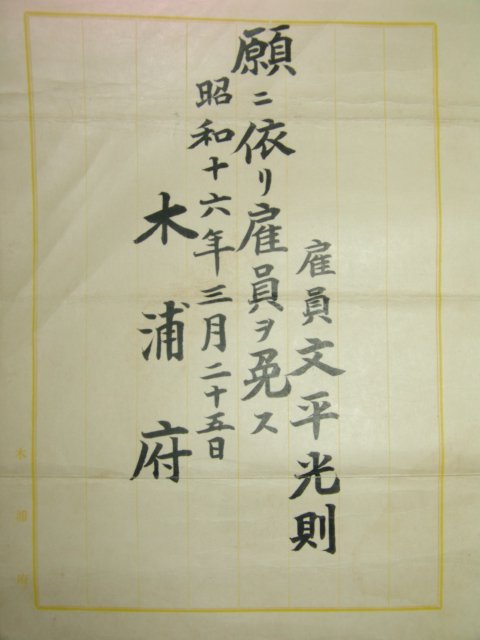 雇員文平光則
願ニ依リ雇員ヲ免ス
昭和十六年三月二十五日
木浦府
木浦府